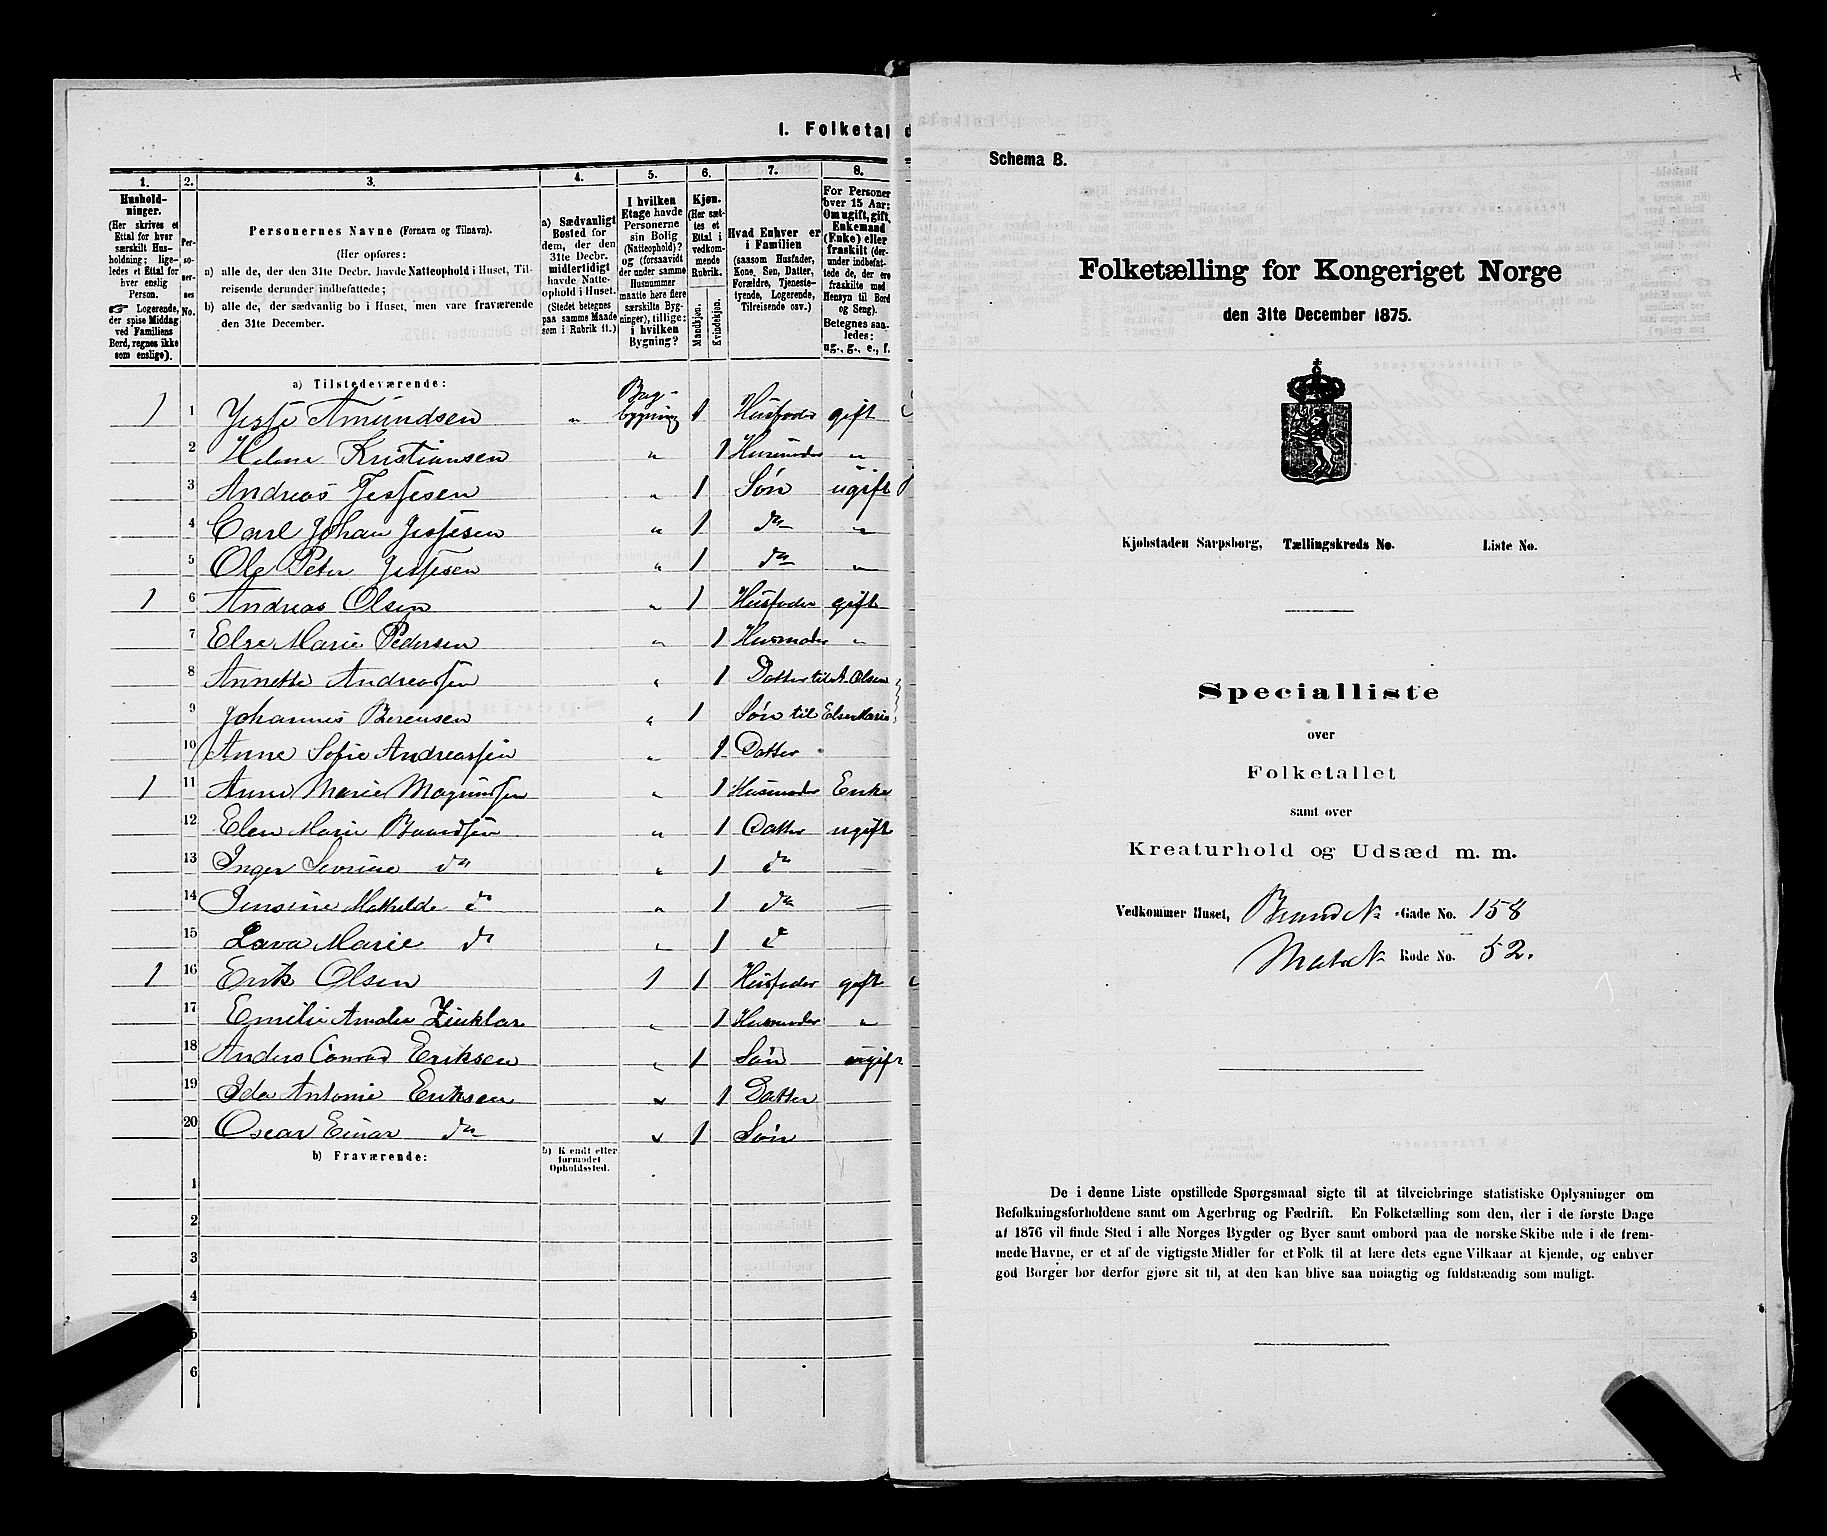 I. Folketal
1.
2.
3.
4.
5.
6.
7.
8.
Hushold-
ninger.
(Her skrives et
Ettal for hver
særskilt Hus-
holdning; lige-
ledes et Ettal for
hver enslig
Person.
Logerende,
der spise Middag
ved Familiens
Bord, regnes ikke
som enslige).
Per-
so-
ner-
nes
No.
Personernes Navne (Fornavn og Tilnavn).
(Her opføres:
a) alle de, der den 31te Decbr. havde Natteophold i Huset, Til-
reisende derunder indbefattede;
b) alle de, der sædvanlig bo i Huset, men vare fraværende
den 31te December.
a) Sædvanligt
Bosted for
dem, der den
31te Decbr.
midlertidigt
havde Natte-
ophold i Huset.
(Stedet betegnes
paa samme Maade
som i Rubrik 11.)
I hvilken
Etage havde
Personerne
sin Bolig
(Natteophold)?
og (forsaavidt
der under samme
Husnummer
maatte høre flere
særskilte Byg-
ninger), tillige:
i hvilken
Bygning?
Kjøn.
(Her sæt-
tes et
Ettal i
vedkom-
mende
Rubrik.
Mandkjøn.
Kvindekjøn.
Hvad Enhver er
i Familien
(saasom Husfader,
Kone, Søn, Datter,
Forældre, Tjeneste-
tyende, Logerende,
Tilreisende osv.)
For Personer
over 15 Aar:
Om ugift, gift,
Enkemand
(Enke) eller
fraskilt (der-
under indbefat-
tede de, der ere
fraskilte med
Hensyn til Bord
og Seng).
Betegnes saa-
ledes:
ug., g., e., f.
a) Tilstedeværende:
1 1 Jesse Amundsen " Bag-
bygning 1 Husfader gift
2 Helene Kristiansen " 1 Husmoder "
3 Andreas Jessesen " 1 Søn ugift
4 Carl Johan Jessesen " 1 do "
5 Ole Peter Jessesen " 1 do "
1 6 Andreas Olsen " 1 Husfader gift
7 Else Marie Pedersen " 1 Husmoder "
8 Annette Andreassen " 1 Datter til A. Olsen
9 Johannes Berensen " 1 Søn til Else Marie
10 Anne Sofie Andreassen " 1 Datter
1 11 Anne Marie Magnussen " 1 Husmoder Enke
12 Elen Marie Baardsen " 1 Datter ugift
13 Inger Severine do " 1 do
14 Jensine Mathilde do " 1 do —
15 Lava Marie do " 1 do
1 16 Erik Olsen 1 1 Husfader gift
17 Emilie Amalie Zinklar " 1 Husmoder "
18 Anders Conrad Eriksen " 1 Søn ugift
19 Ida Antonie Eriksen " 1 Datter
20 Oscar Einar do " 1 Søn
b) Fraværende:
b) Kjendt eller
formodet
Opholdssted.
1
2
3
4
5
6
Schema B.
Folketælling for Kongeriget Norge
den 31te December 1875.
Kjøbstaden Sarpsborg, Tællingskreds No. Liste No.
Specialliste
over
Folketallet
samt over
Kreaturhold og Udsæd m. m.
Vedkommer Huset, Brand No Gade No. 158
Matr No Rode No. 52.
De i denne Liste opstillede Spørgsmaal sigte til at tilveiebringe statistiske Oplysninger om
Befolkningsforholdene samt om Agerbrug og Fædrift. En Folketælling som den, der i de første Dage
af 1876 vil finde Sted i alle Norges Bygder og Byer samt ombord paa de norske Skibe ude i de frem-
mede Havne, er et af de vigtigste Midler for et Folk til at lære dets egne Vilkaar at kjende, og enhver
god Borger bør derfor gjøre sit til, at den kan blive saa nøiagtig og fuldstændig som muligt.